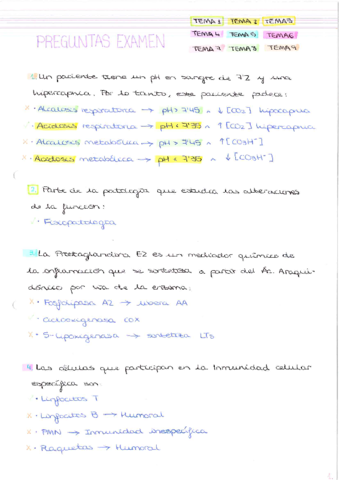 TEMA 1 TEMA 2 TEMA 3
PREGUNTAS EXAMEN TEMA 4 TEMA 5 TEMA 6
TEMA 7 TEMA 8 TEMA 9
1. Un paciente tiene un pH en sangre de 7'2 y una
hipercapnia. Por lo tanto, este paciente padece:
x · Alcalosis respiratoria → pH > 7'45 ^ ↓ [CO2] hipocapnia
✓ · Acidosis respiratoria → pH < 7'35 ^ ↑ [CO2] hipercapnia
x · Alcalosis metabólica → pH > 7'45 ^ ↑ [CO3H⁻]
x · Acidosis metabólica → pH < 7'35 ^ ↓ [CO3H⁻]
2. Parte de la patología que estudia las alteraciones
de la función:
✓ · Fisiopatología
3. La Prostaglandina E2 es un mediador químico de
la inflamación que se sintetiza a partir del Ac. Araqui-
dónico por vía de la enzima:
x · Fosfolipasa A2 → libera AA
✓ · Ciclooxigenasa COX
x · 5-Lipoxigenasa → sintetiza LTs
4. Las células que participan en la Inmunidad celular
específica son:
✓ · Linfocitos T
x · Linfocitos B → Humoral
x · PMN → Inmunidad inespecífica
x · Plaquetas → Humoral